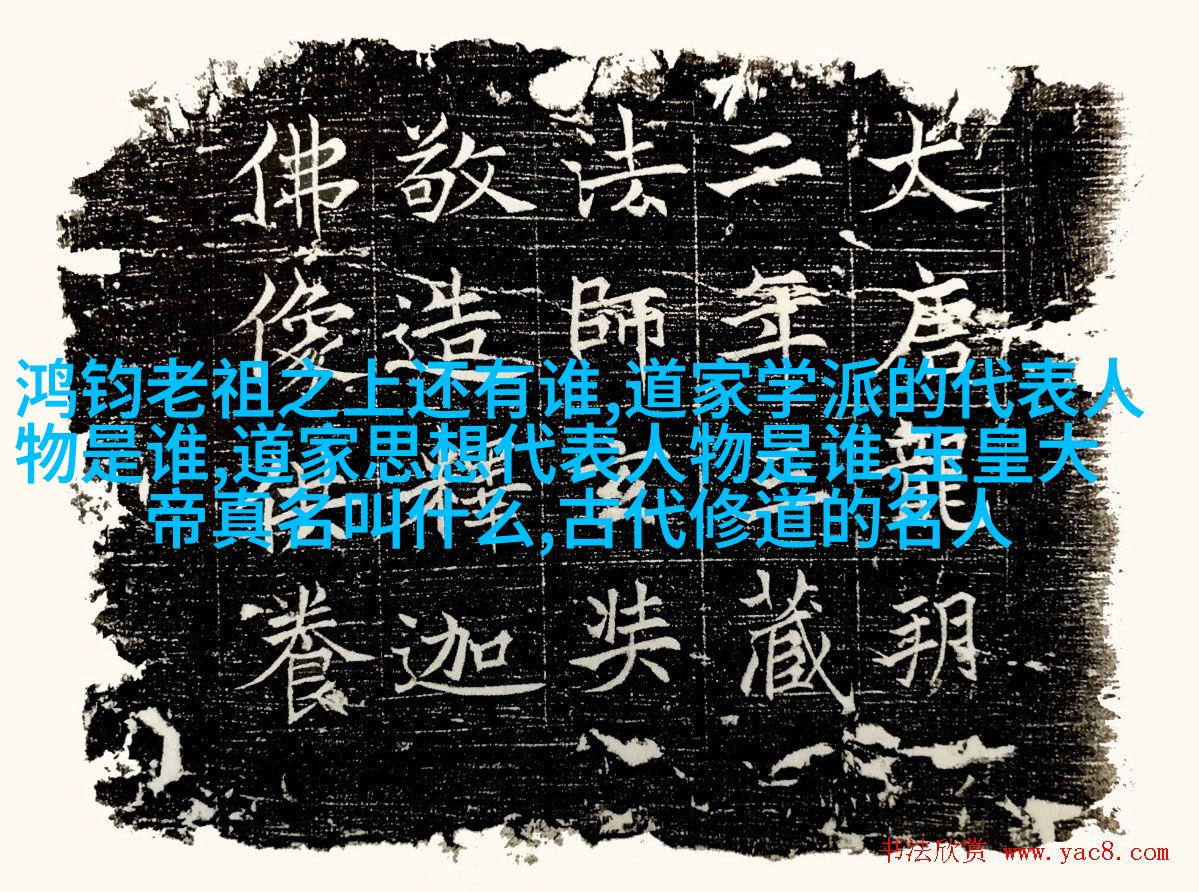 大唐龍朔
二年三藏
法師玄奘
敬造釋迦
佛像供養
鸿钧老祖之上还有谁,道家学派的代表人
物是谁,道家思想代表人物是谁,玉皇大
帝真名叫什么,古代修道的名人
书法欣赏 www.yac8.com